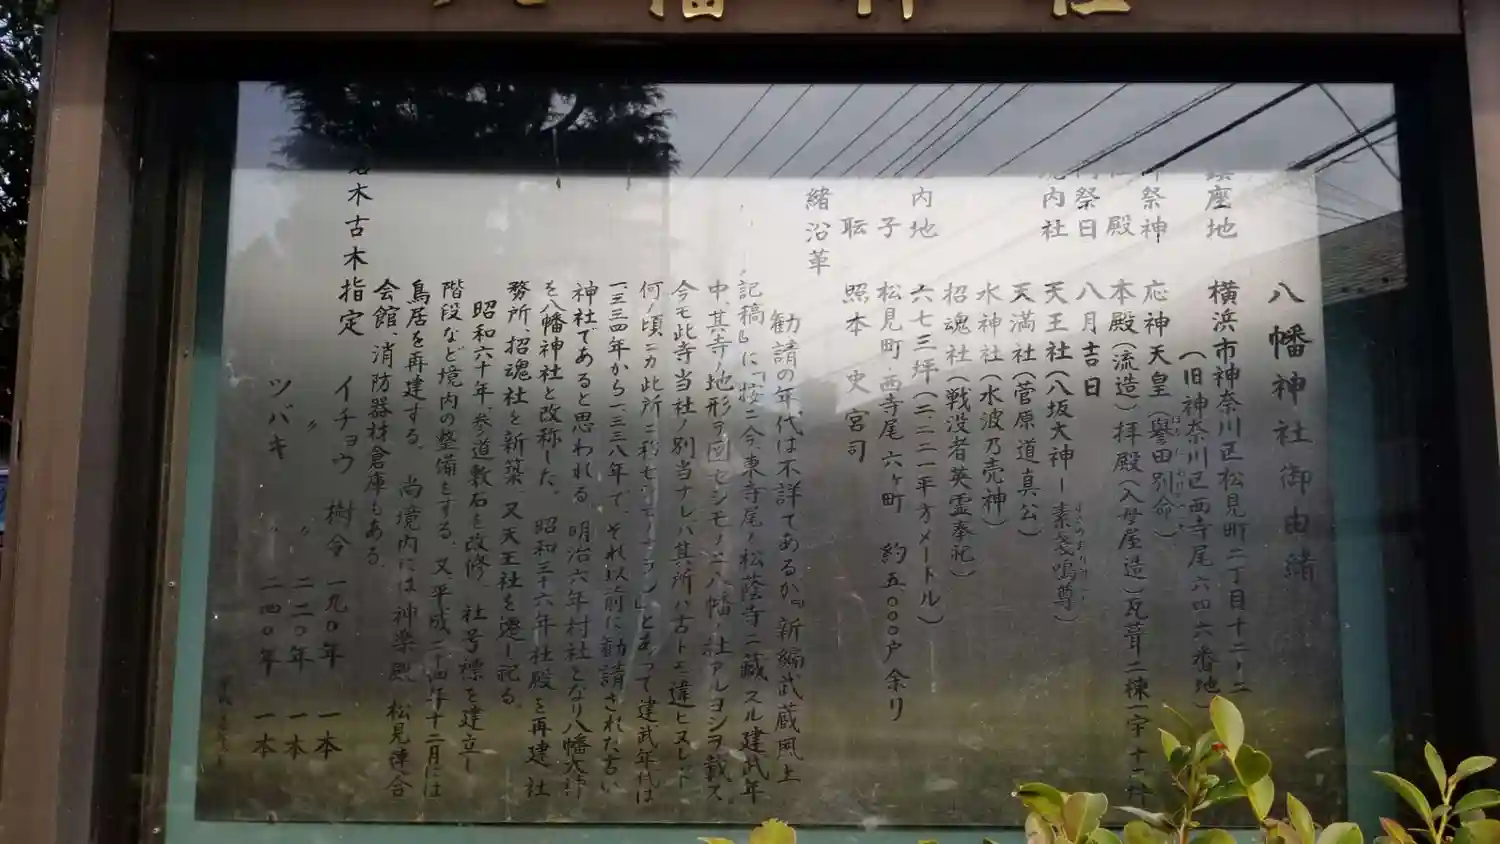 八幡神社
八幡神社御由緒
鎮座地 横浜市神奈川区松見町二丁目十二ノ二
(旧神奈川区西寺尾六四六番地)
御祭神 応神天皇(譽田別命)
殿 本殿(流造)拝殿(入母屋造)瓦葺二棟一宇十一坪
祭日 八月吉日
境内社 天王社(八坂大神ー素戔嗚尊)
天満社(菅原道真公)
水神社(水波乃売神)
招魂社(戦没者英霊奉祀)
内地 六七三坪(二二二一平方メートル)
子 松見町・西寺尾六ヶ町 約五〇〇〇戸余り
照本 史 宮司
緒沿革
勧請の年代は不詳であるが『新編武蔵風土
記稿』に「按ニ今東寺尾ノ松蔭寺ニ蔵スル建武年
中其寺ノ地形ヲ図セシモノニ八幡ノ社アルヨシヲ載ス。
今モ此寺当社ノ別当ナレバ其所ハ古トモ違ヒヌレド
何ノ頃ニカ此所ニ移セシ」とあって建武年代は
一三三四年から一三三八年で、それ以前に勧請された古い
神社であると思われる。明治六年村社となり八幡大神
を八幡神社と改称した。 昭和三十六年社殿を再建 社
務所、招魂社を新築、又天王社を遷し祀る。
昭和六十年、参道敷石を改修、社号標を建立し
階段など境内の整備をする。又、平成二十四年十二月には
鳥居を再建する。 尚境内には神楽殿 松見連合
会館、消防器材倉庫もある。
名木古木指定 イチョウ 樹令 一九〇年 一本
〃 〃 二二〇年 一本
ツバキ 〃 二四〇年 一本